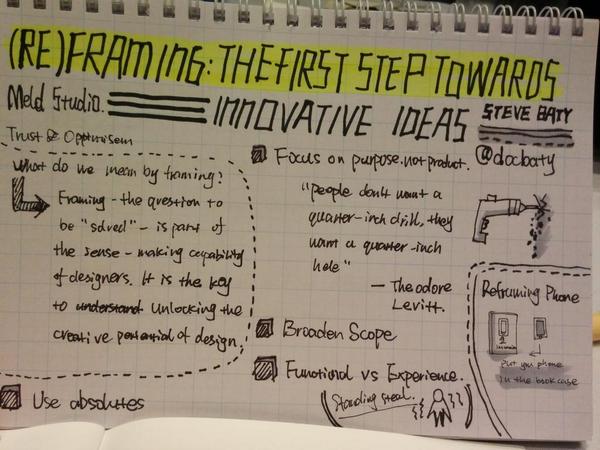 (RE)FRAMING: THE FIRST STEP TOWARDS
INNOVATIVE IDEAS
Meld Studio.
STEVE BATY
@docbaty
Trust & Optimism
What do we mean by framing?
Framing - the question to
be "solved" - is part of
the sense-making capability
of designers. It is the key
to understand unlocking the
creative potential of design.
Use absolutes
Focus on purpose. not product.
"people don't want a
quarter-inch drill, they
want a quarter-inch
hole"
— Theodore
Levitt.
Broaden Scope
Functional vs Experience.
Standing
Reframing Phone
put you phone
in the book case